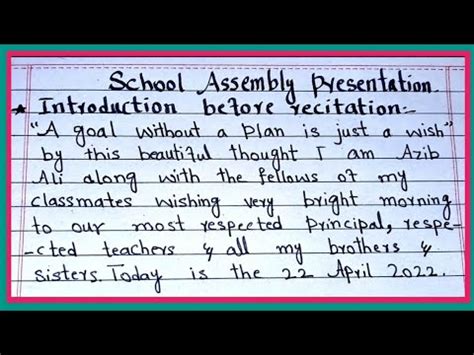 School Assembly presentation.
* Introduction before recitation:-
"A goal without a plan is just a wish"
by this beautiful thought I am Azib
Ali along with the fellows of my
classmates wishing very bright morning
to our most respected Principal, respe-
-cted teachers & all my brothers &
sisters. Today is the 22 April 2022.